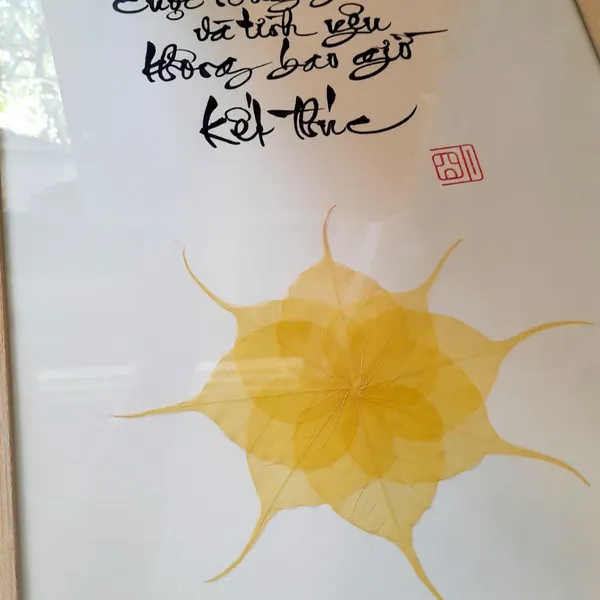 Cuộc
và tình yêu
không bao giờ
kết thúc